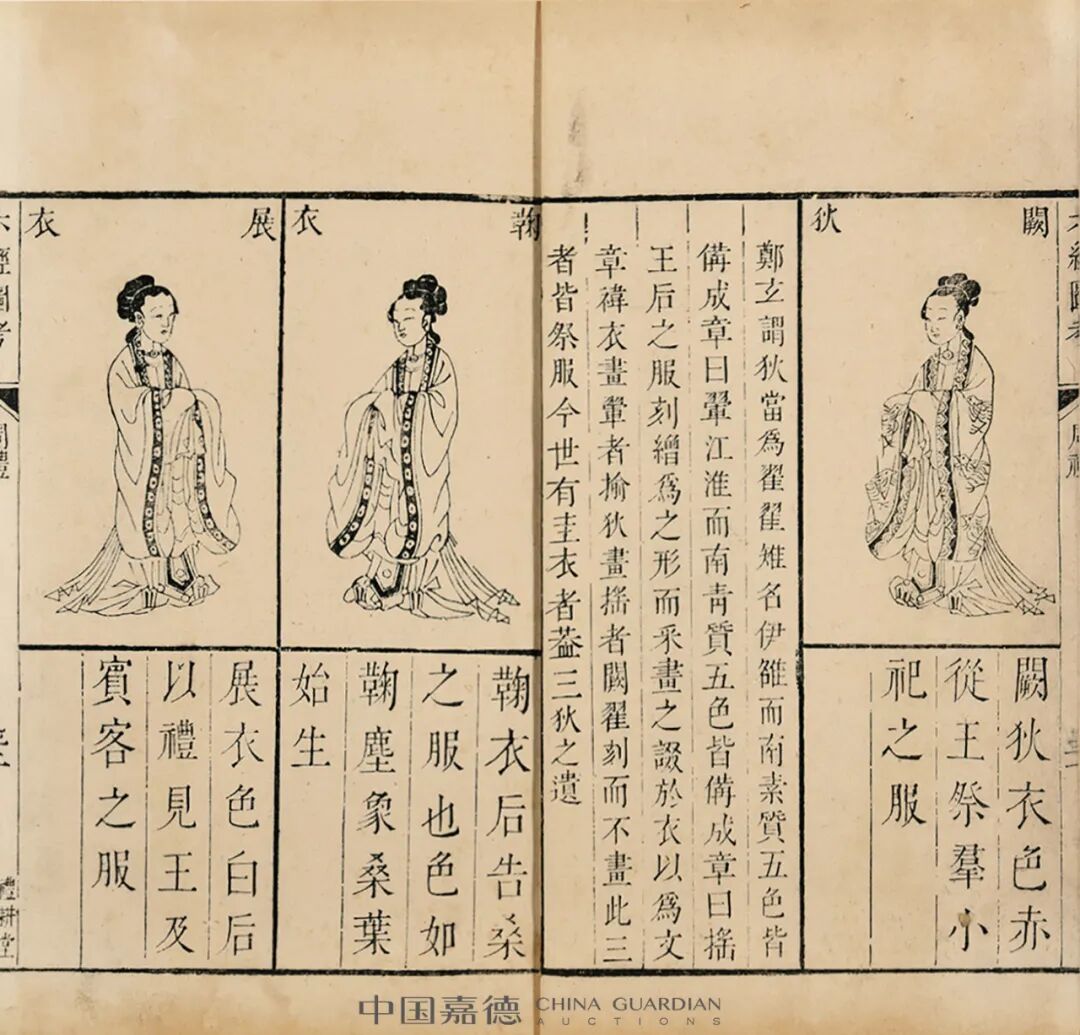 闕狄
闕狄衣色赤
從王祭羣小
祀之服
鄭玄謂狄當爲翟翟雉名伊雒而南素質五色皆
備成章曰翬江淮而南青質五色皆備成章曰搖
王后之服刻繒爲之形而采畫之綴於衣以爲文
章褘衣畫翬者揄狄畫搖者闕翟刻而不畫此三
者皆祭服今世有圭衣者葢三狄之遺
鞠衣
鞠衣后告桑
之服也色如
鞠塵象桑葉
始生
展衣
展衣色白后
以禮見王及
賓客之服
六經圖考
周禮
禮耕堂
中国嘉德 CHINA GUARDIAN
AUCTIONS